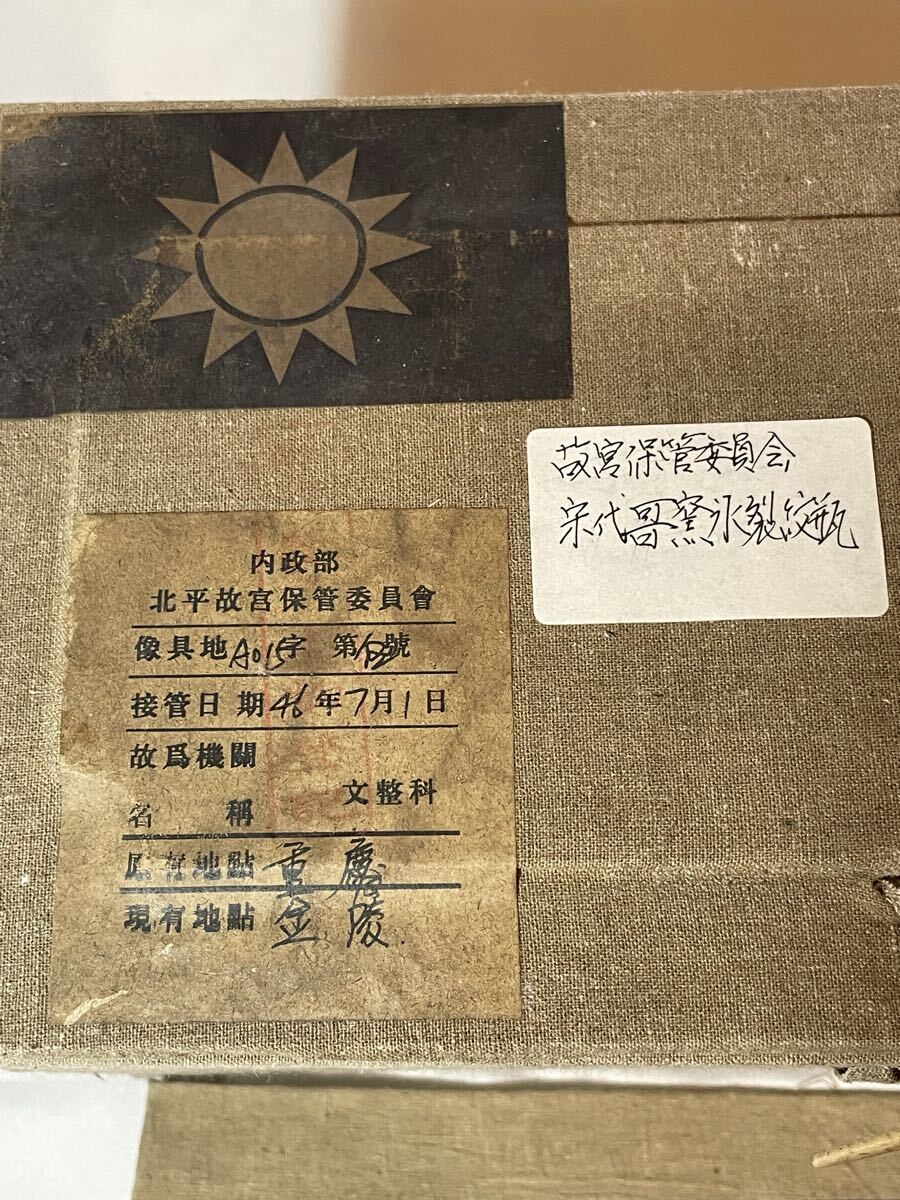 故宮保管委員会
宋代哥窯氷裂紋瓶
内政部
北平故宮保管委員會
像具地A015字 第 號
接管日期46年7月1日
故爲機關
文整科
名稱
原有地點 重慶
現有地點 金陵